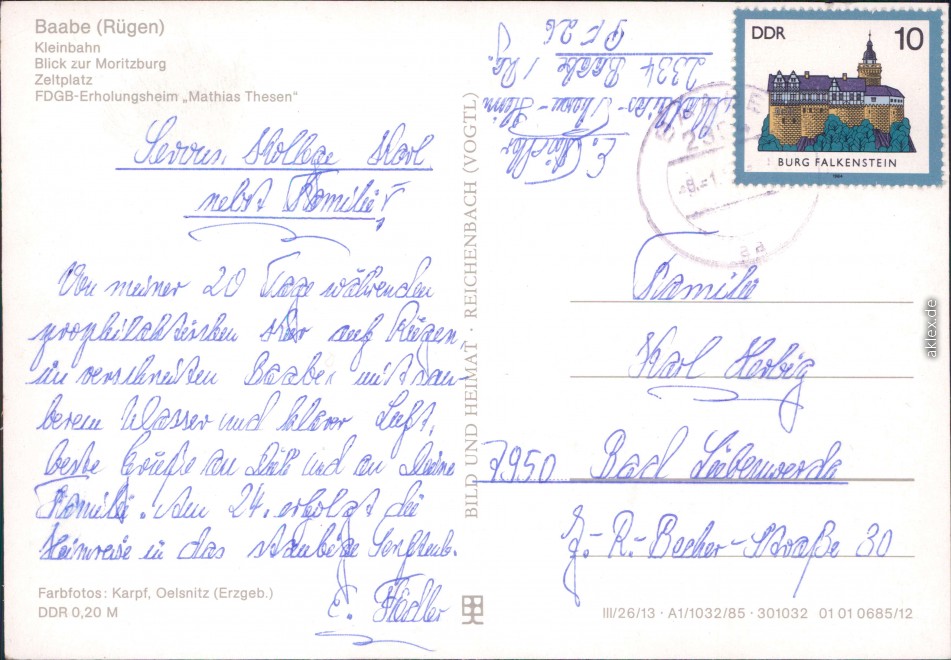 Baabe (Rügen)
Kleinbahn
Blick zur Moritzburg
Zeltplatz
FDGB-Erholungsheim „Mathias Thesen“
Servus, Kollege Karl
nebst Familie!
Von meiner 20 Tage währenden
prophilaktischen Kur auf Rügen,
im verschneiten Baabe, mit sau-
berem Wasser und klarer Luft,
beste Grüße an Dich und an Deine
Familie. Am 24. erfolgt die
Heimreise in das staubige Senftenb.
E.
Farbfotos: Karpf, Oelsnitz (Erzgeb.)
DDR 0,20 M
BILD UND HEIMAT · REICHENBACH (VOGTL)
E.
Heim
2334 Baabe / Rg.
PF 26
DDR 10
BURG FALKENSTEIN
1984
Familie
Karl Herbig
7950 Bad Liebenwerda
J.-R.-Becher-Straße 30
III/26/13 · A1/1032/85 · 301032 01 01 0685/12
aklex.de